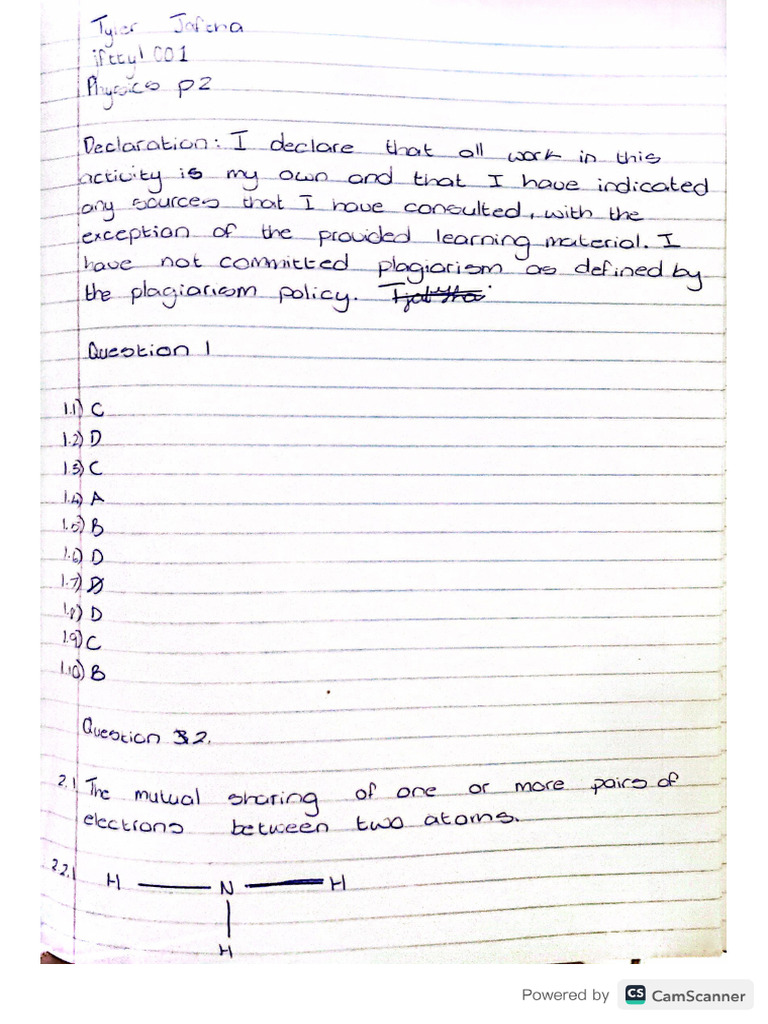 Tyler Jaftha
ifttyl001
Physics p2
Declaration: I declare that all work in this
activity is my own and that I have indicated
any sources that I have consulted, with the
exception of the provided learning material. I
have not committed plagiarism as defined by
the plagiarism policy.
Question 1
1.1) C
1.2) D
1.3) C
1.4) A
1.5) B
1.6) D
1.7)
1.8) D
1.9) C
1.10) B
Question 2.
2.1 The mutual sharing of one or more pairs of
electrons between two atoms.
2.2.1 H N H
H
Powered by CS CamScanner